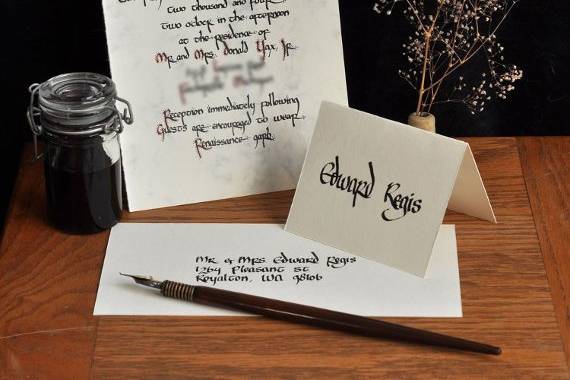 two thousand and four
two o'clock in the afternoon
at the presidence of
Mr and Mrs. Donald Yax, Jr.
Reception immediately following
Guests are encouraged to wear
Renaissance garb
Edward Regis
Mr. & Mrs. Edward Regis
1264 Pleasant St
Royalton, WA 98106